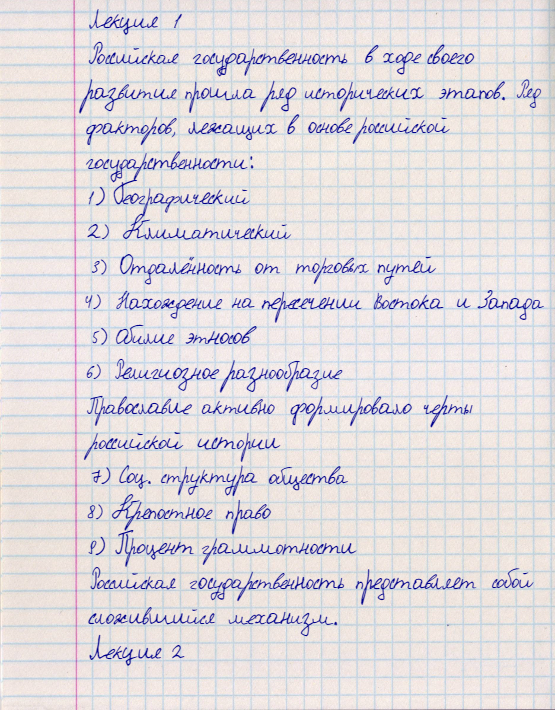 Лекция 1
Российская государственность в ходе своего
развития прошла ряд исторических этапов. Ряд
факторов, лежащих в основе российской
государственности:
1) Географический
2) Климатический
3) Отдалённость от торговых путей
4) Нахождение на пересечении Востока и Запада
5) Обилие этносов
6) Религиозное разнообразие
Православие активно формировало черты
российской истории
7) Соц. структура общества
8) Крепостное право
9) Процент граммотности
Российская государственность представляет собой
сложившийся механизм.
Лекция 2